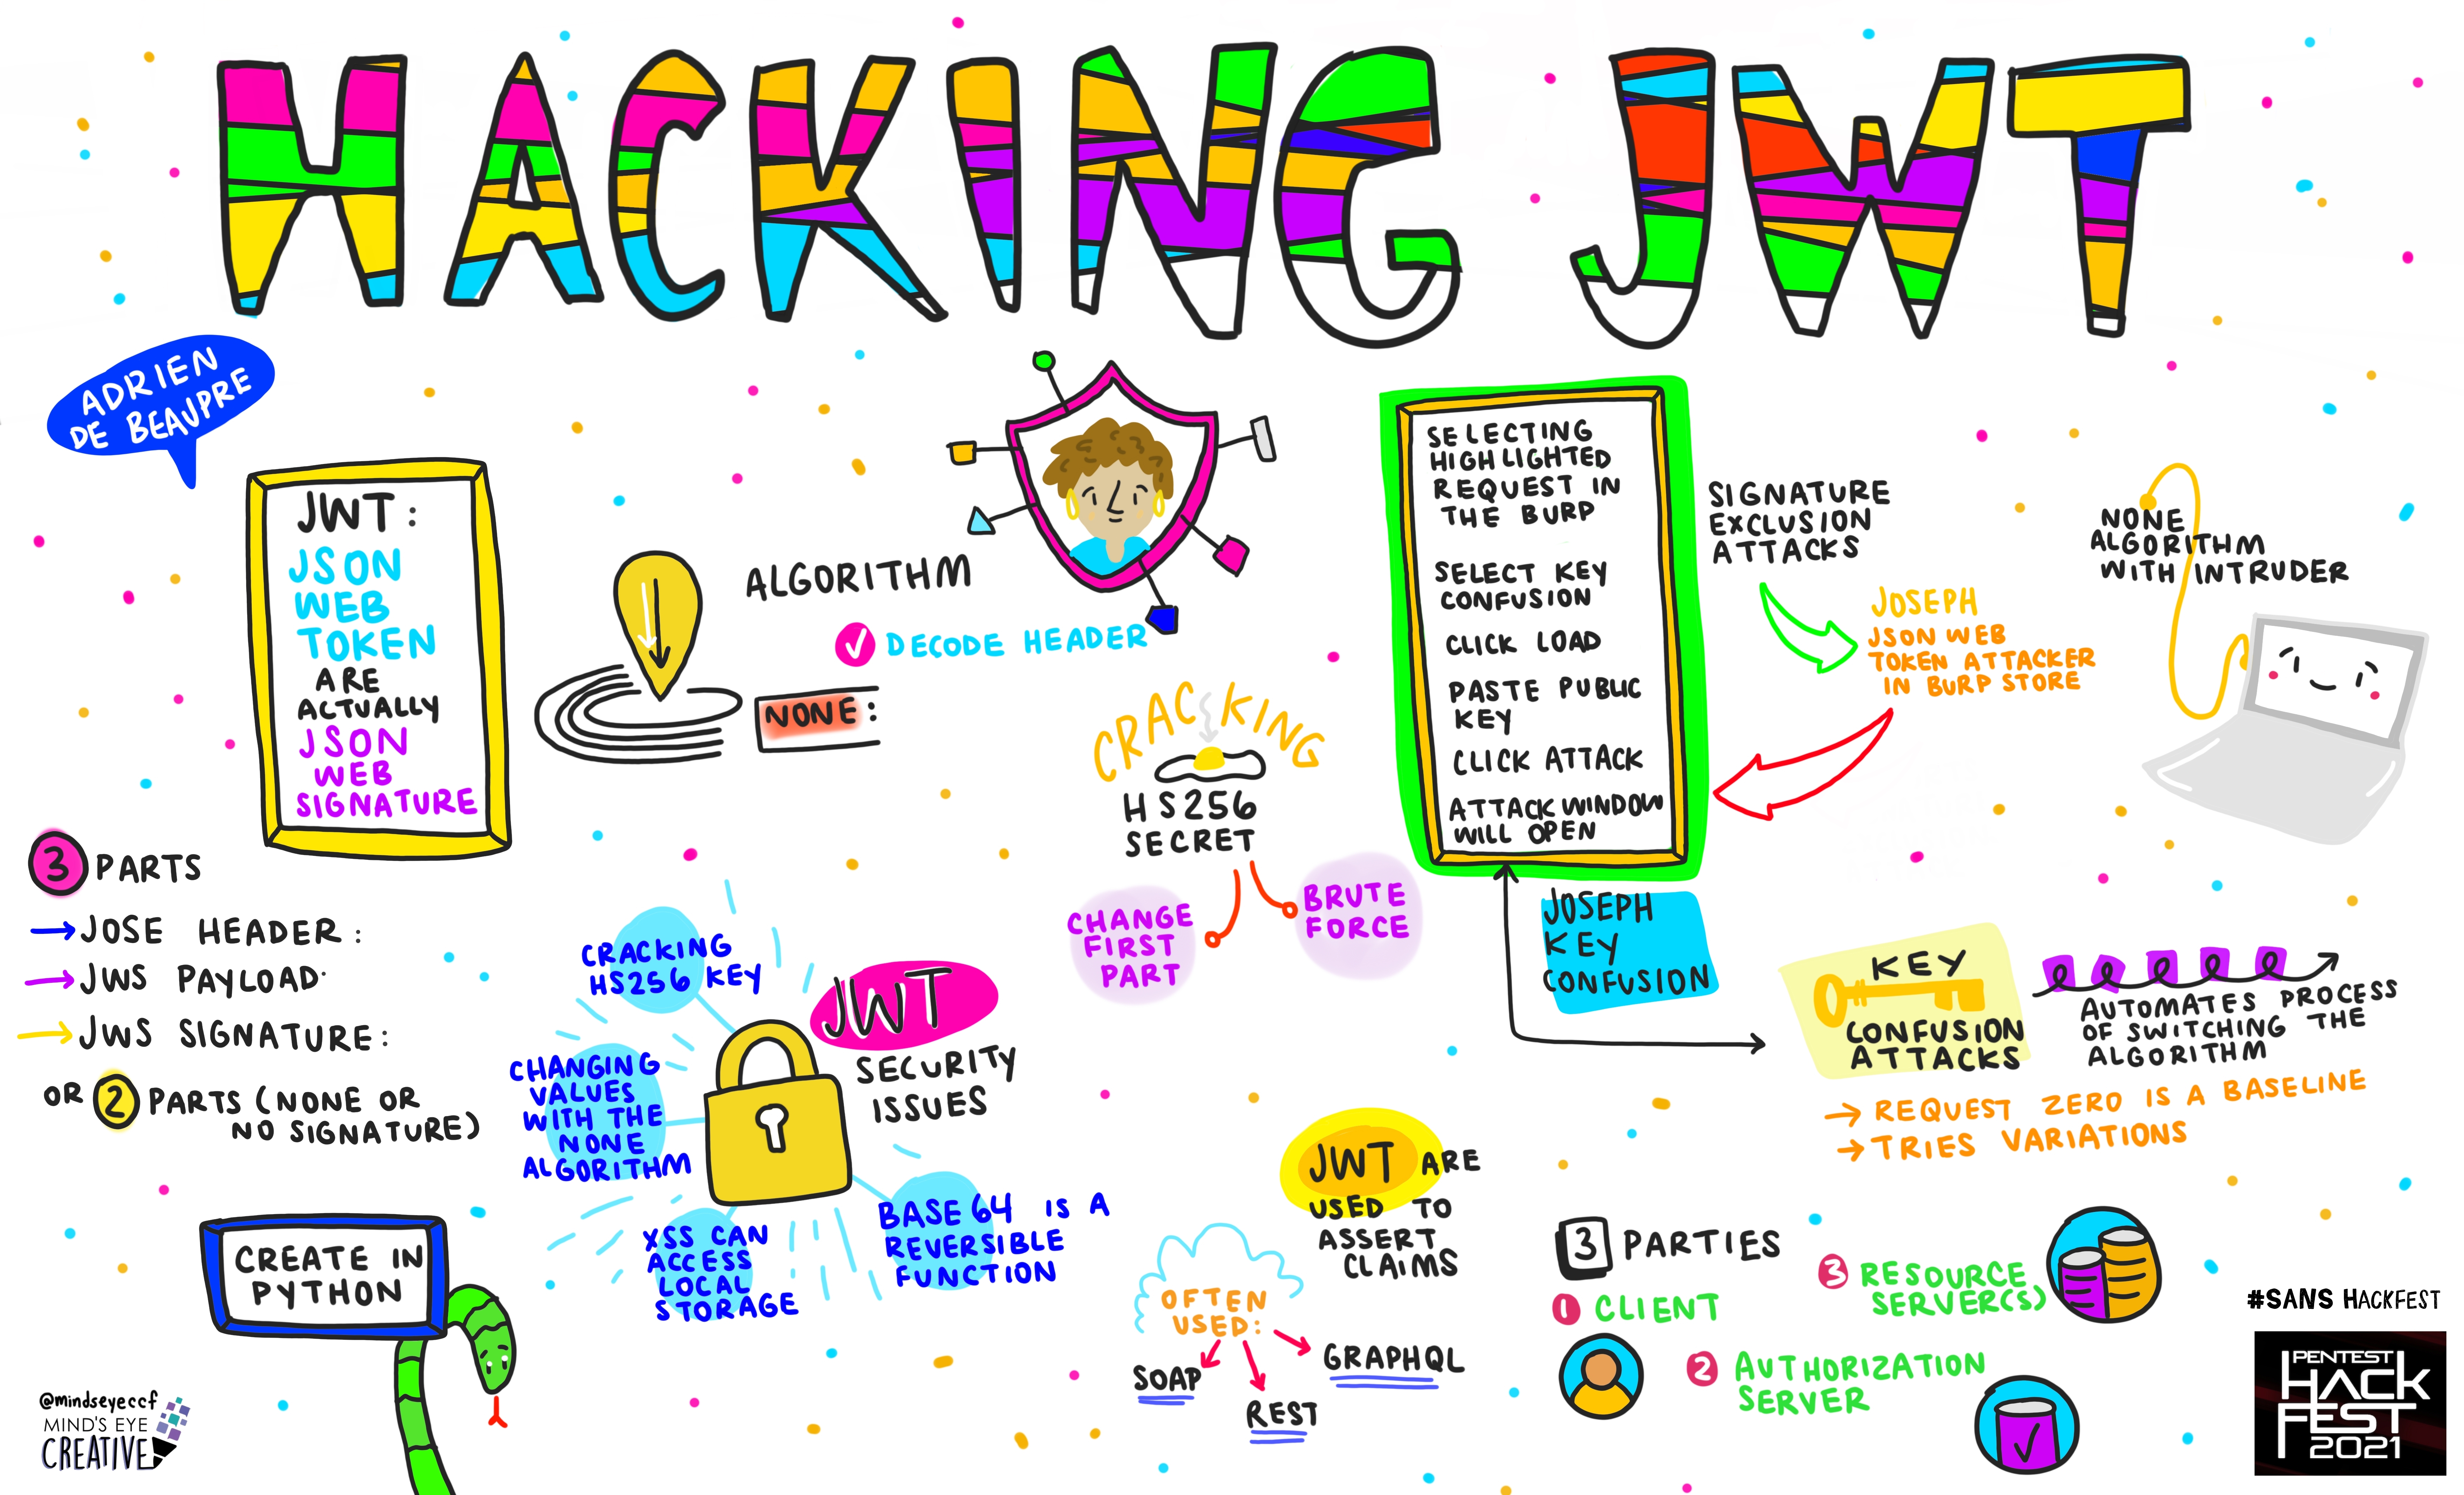 HACKING JWT
ADRIEN
DE BEAUPRE
JWT:
JSON
WEB
TOKEN
ARE
ACTUALLY
JSON
WEB
SIGNATURE
ALGORITHM
DECODE HEADER
NONE:
3 PARTS
JOSE HEADER:
JWS PAYLOAD:
JWS SIGNATURE:
OR 2 PARTS (NONE OR
NO SIGNATURE)
CREATE IN
PYTHON
@mindseyeccf
MIND'S EYE
CREATIVE
JWT
SECURITY
ISSUES
CRACKING
HS256 KEY
CHANGING
VALUES
WITH THE
NONE
ALGORITHM
XSS CAN
ACCESS
LOCAL
STORAGE
BASE 64 IS A
REVERSIBLE
FUNCTION
CRACKING
HS256
SECRET
CHANGE
FIRST
PART
BRUTE
FORCE
SELECTING
HIGHLIGHTED
REQUEST IN
THE BURP
SELECT KEY
CONFUSION
CLICK LOAD
PASTE PUBLIC
KEY
CLICK ATTACK
ATTACK WINDOW
WILL OPEN
SIGNATURE
EXCLUSION
ATTACKS
JOSEPH
JSON WEB
TOKEN ATTACKER
IN BURP STORE
NONE
ALGORITHM
WITH INTRUDER
JOSEPH
KEY
CONFUSION
KEY
CONFUSION
ATTACKS
AUTOMATES PROCESS
OF SWITCHING THE
ALGORITHM
REQUEST ZERO IS A BASELINE
TRIES VARIATIONS
JWT ARE
USED TO
ASSERT
CLAIMS
OFTEN
USED:
SOAP
REST
GRAPHQL
3 PARTIES
1 CLIENT
2 AUTHORIZATION
SERVER
3 RESOURCE
SERVER(S)
#SANS HACKFEST
PENTEST
HACK
FEST
2021